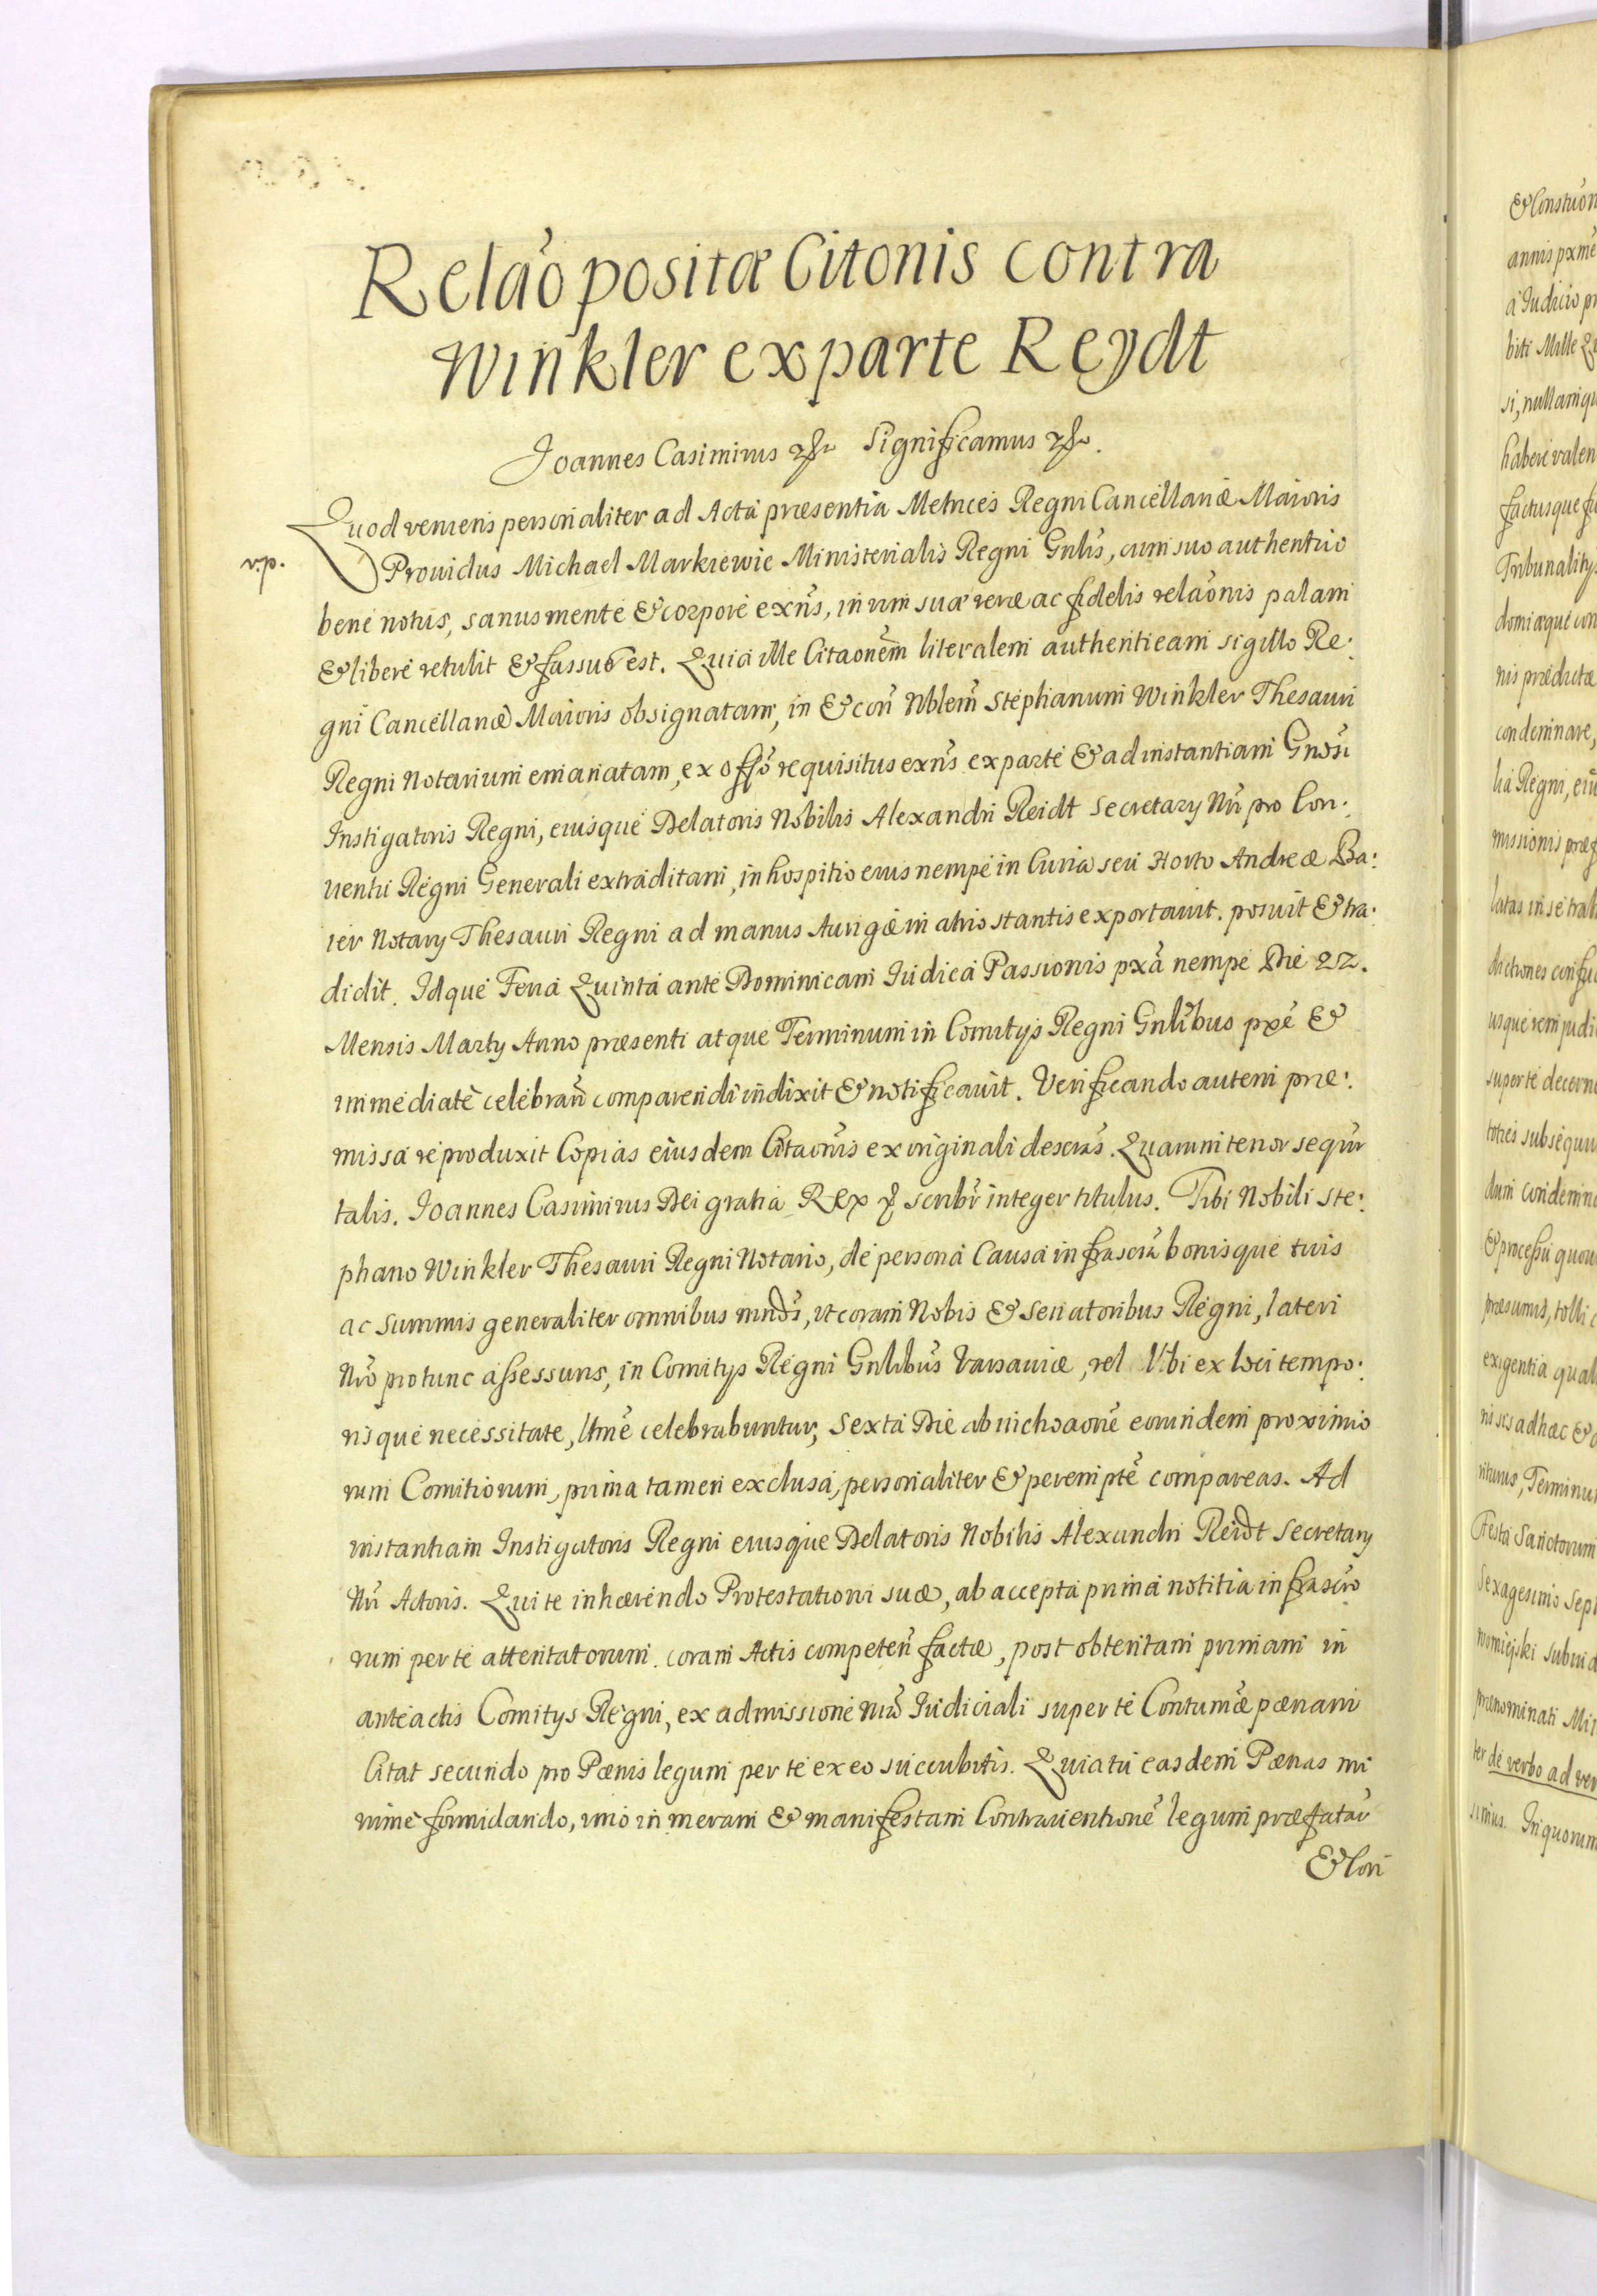 Relão positæ Citonis contra
Winkler ex parte Reydt
Joannes Casimirus Significamus
Quod veniens personaliter ad Acta præsentia Metrices Regni Cancellariæ Maioris
v.p.
Prouidus Michael Markiewic Ministerialis Regni Gnlis, cum suo authentico
bene notus, sanus mente & corpore exñs, in vim suæ veræ ac fidelis relãonis palam
& libere retulit & fassus est. Quia ille Citaonẽm literalem authenticam sigillo Re:
gni Cancellariæ Maioris obsignatam, in & coñ Nblem̃ Stephanum Winkler Thesauri
Regni Notarium emanatam, ex offõ requisitus exñs ex parte & ad instantiam Gnõsi
Instigatoris Regni, eiusque Delatoris Nobilis Alexandri Reidt Secretary Nri pro Con:
uentu Regni Generali extraditam, in hospitio eius nempe in Curia seu Horto Andreæ Ba:
ier Notary Thesauri Regni ad manus Aurigæ in atrio stantis exportauit. posuit & tra:
didit. Idque Feria Quinta ante Dominicam Iudica Passionis pxã nempe Die 22.
Mensis Marty Anno præsenti atque Terminum in Comitys Regni Gnlibus pxe &
immediate celebrañ comparendi indixit & notificauit. Verificando autem præ:
missa reproduxit Copias eiusdem Citaonis ex originali descrõs. Quarum tenor sequr
talis. Joannes Casimirus Dei gratia Rex scribr integer titulus. Tibi Nobili Ste:
phano Winkler Thesauri Regni Notario, de persona Causa infrascra bonisque tuis
ac summis generaliter omnibus mndõs, vt coram Nobis & Senatoribus Regni, lateri
Nrõ pro tunc assessuris, in Comitys Regni Gnlibus Varsauiæ, vel Vbi ex loci tempo:
risque necessitate, ltme celebrabuntur, Sexta Die ab inchoaone eorundem proximio
rum Comitiorum, prima tamen exclusa, personaliter & peremptẽ compareas. Ad
instantiam Instigatoris Regni eiusque Delatoris Nobilis Alexandri Reidt Secretary
Nri Actoris. Qui te inhærendo Protestationi suæ, ab accepta prima notitia infrascro
rum per te attentatorum. coram Actis competeñ factæ, post obtentam primam in
anteactis Comitys Regni, ex admissione Nrã Iudiciali super te Contumæ pœnam
Citat secundo pro Pœnis legum per te ex eo succubitis. Quia tu easdem Pœnas mi
nime formidando, imo in meram & manifestam Contrauentionẽ legum præfatar̃
& Con